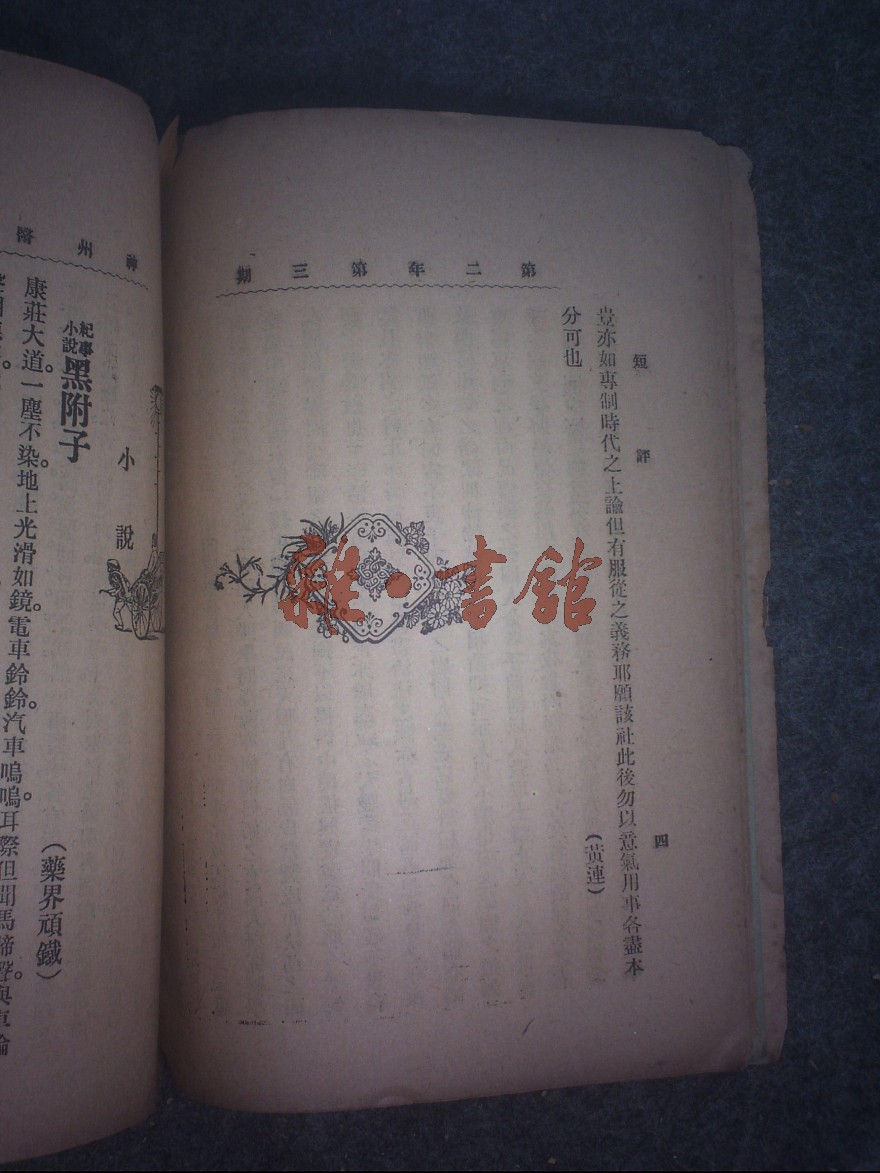 第二年第三期
短評
四
豈亦如専制時代之上諭但有服從之義務耶願該社此後勿以意氣用事各盡本
分可也
(黃連)
雜·書館
神州醫
小說
紀事小說
黑附子
(藥界頑鐵)
康莊大道。一塵不染。地上光滑如鏡。電車鈴鈴。汽車嗚嗚。耳際但聞馬蹄聲。與車輪